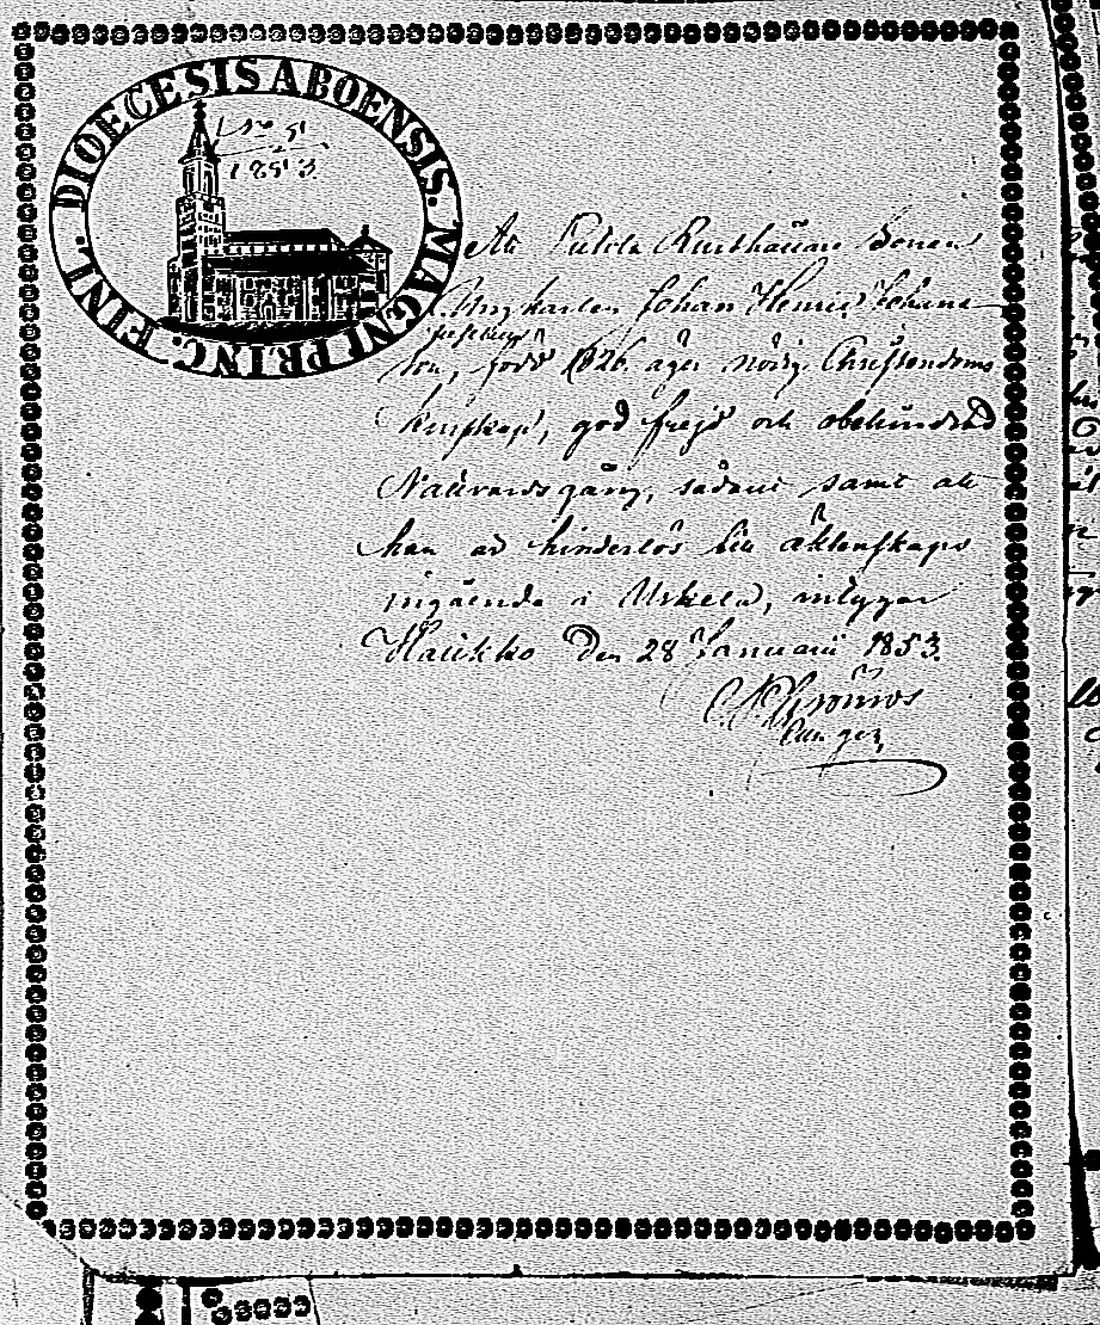 DIOECESIS ABOENSIS. MAGNI PRINC. FINL.
No 51
1853.
Att Rusthållare Sonen
Ungkarlen Johan Henric Johans-
son, född 1826. äger nöjig Christendoms
kunskap, god frejd och obehindrad
Nattvardsgång, sådant samt att
han är hinderlös till äktenskaps
ingående i Uskela, intygar
Halikko den 28 Januarii 1853.